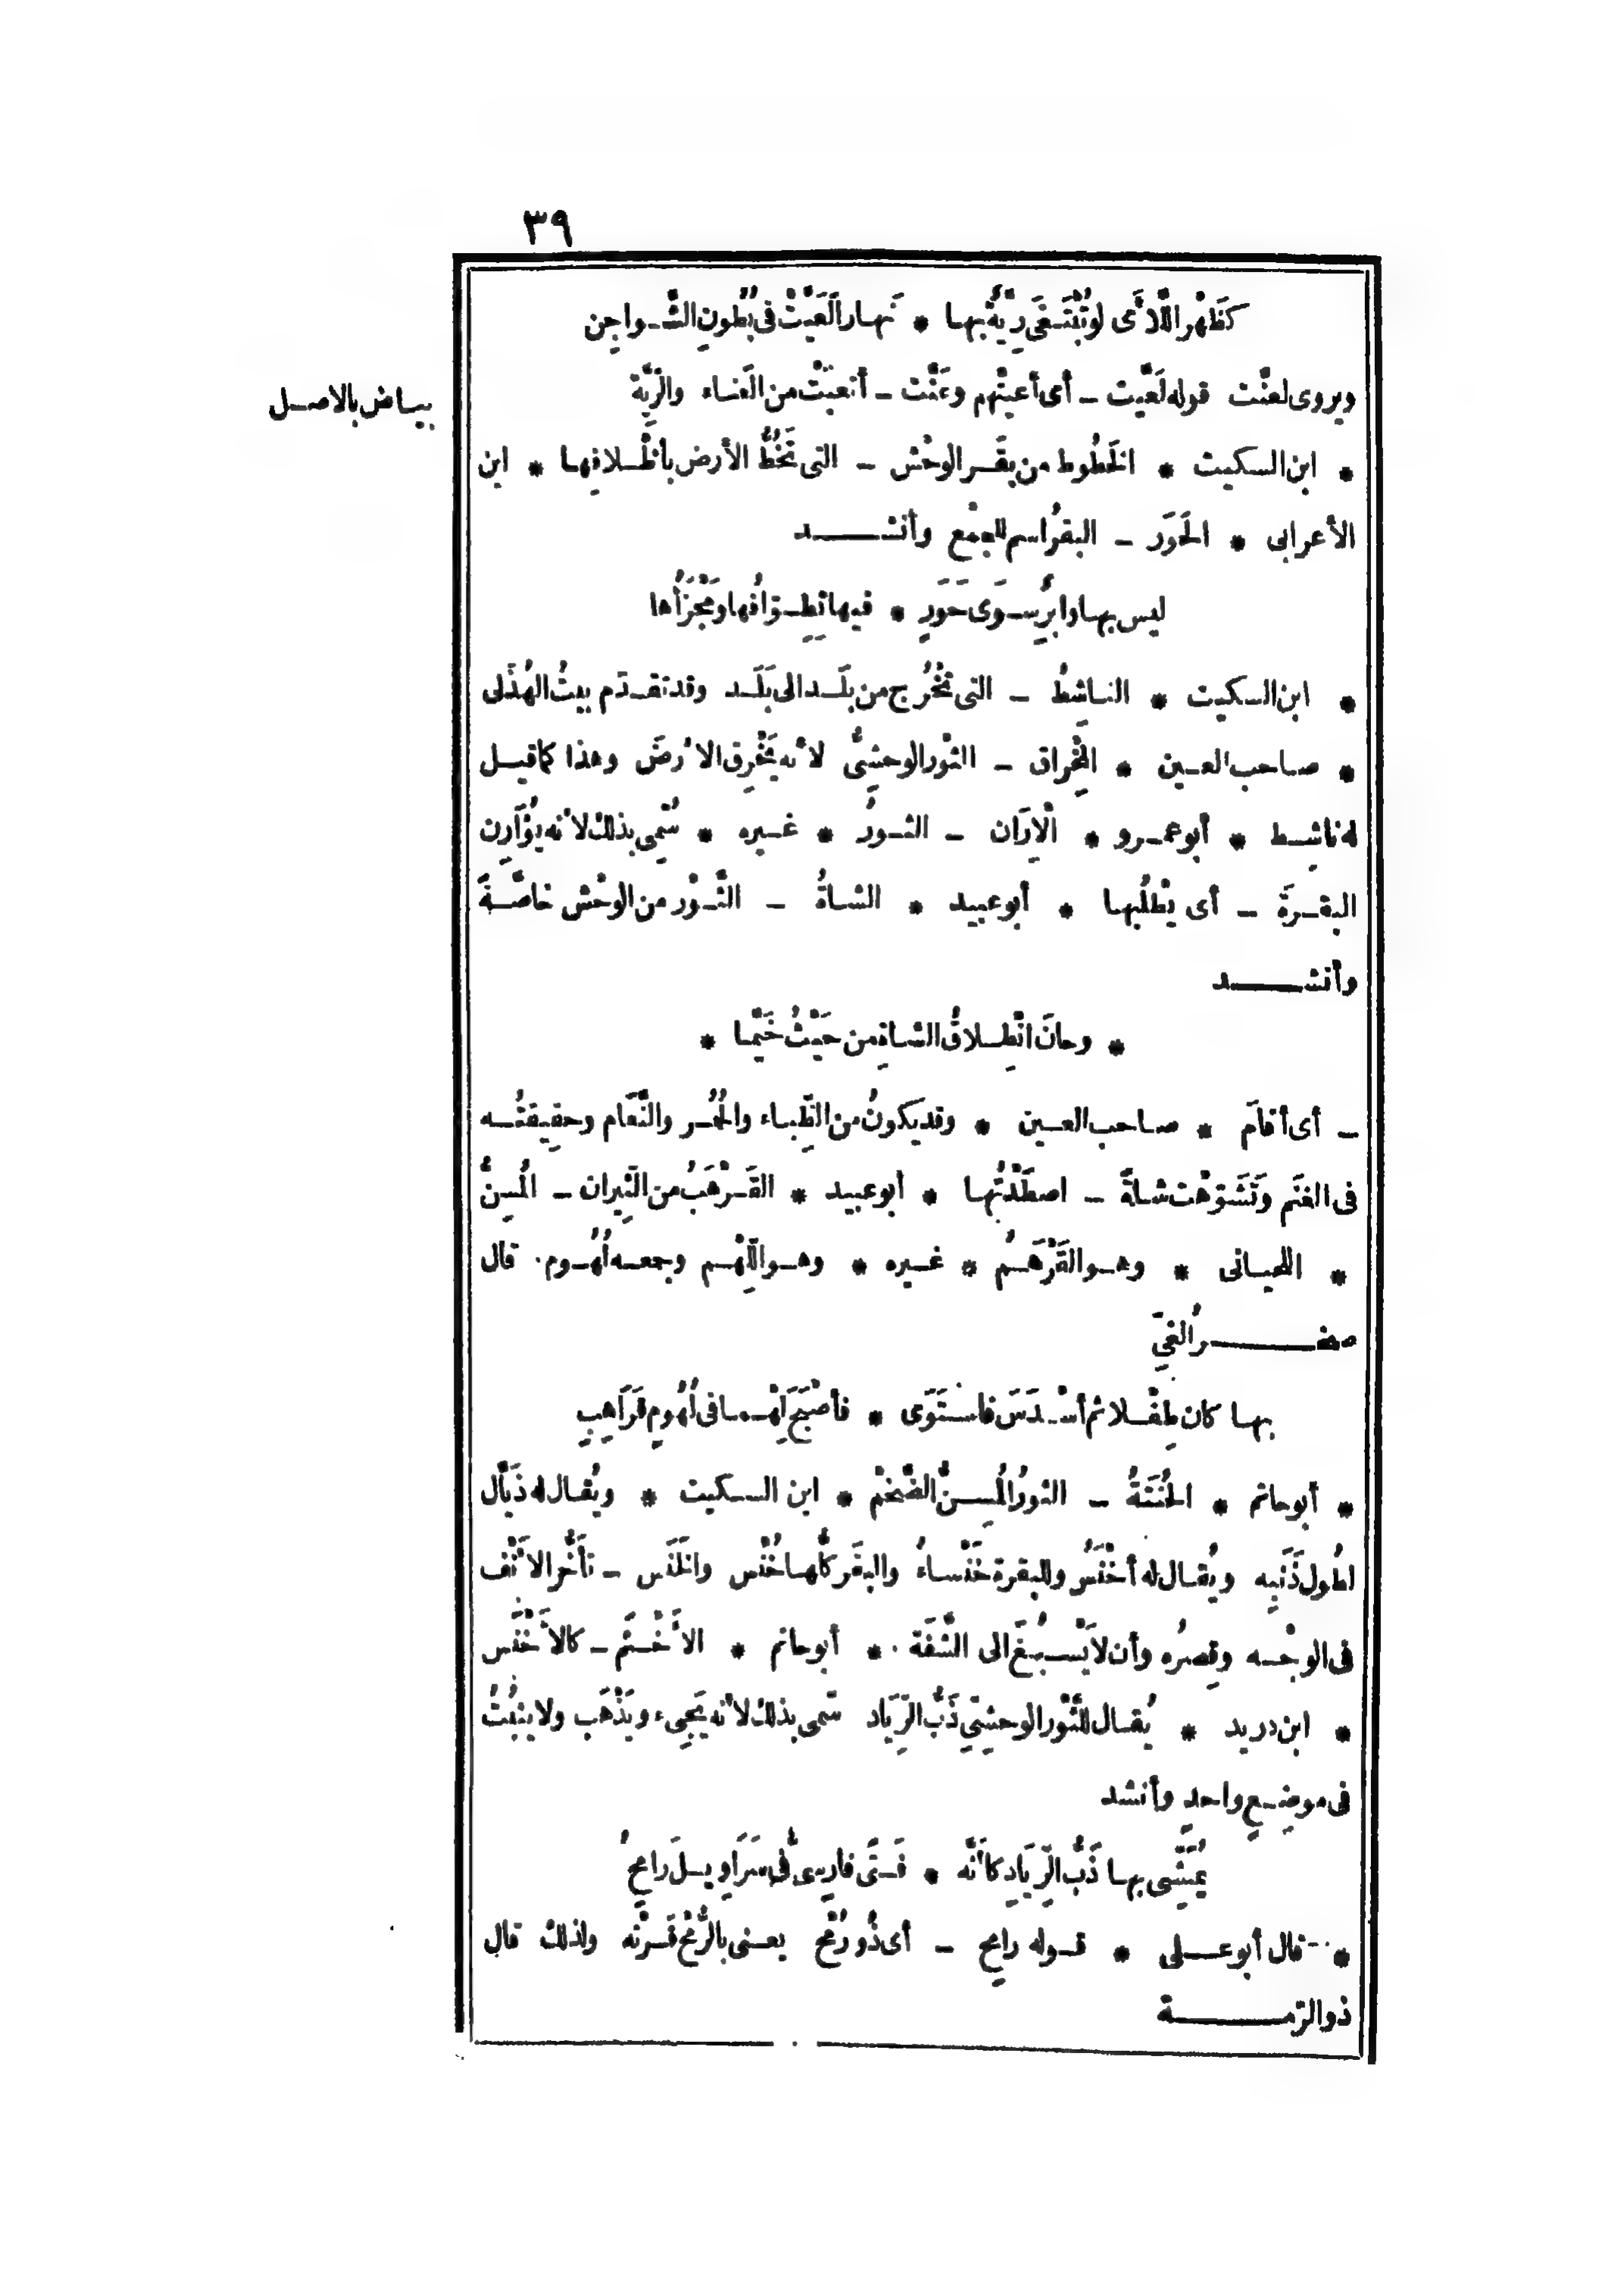 ٣٩
كَظَهْرِ اللَّأَى لو تُبْتَغَى رِيَّةٌ بها * نَهارًا لَعَيَّتْ فى بُطُونِ الشَّواجِن
ويروى لعنَّت قوله لَعَيَّت - أى أعيتْهم وعَنَّت - أتعبَتْ من العَناء والرِّيَّة
بياض بالاصل
* ابن السكيت * الخَطُوط من بقَر الوحْش - التى تَخُطُّ الأرض بأظْلافِها * ابن
الأعرابى * الحَوَر - البقرُ اسم للجمْع وأنشد
ليس بها وابِرٌ سِوَى حَوَرٍ * فيها تِطِوّافُها ومَجْزَأُها
* ابن السكيت * الناشطُ - التى تخْرُج من بلَد الى بَلَد وقد تقدّم بيتُ الهُذَلى
* صاحب العين * المِخْراق - الثوْر الوحشِىُّ لأنه يَخْرِق الأرضَ وهذا كما قيل
له ناشِط * أبو عمرو * الْإرَان - الثورُ * غيره * سُمِّى بذلك لأنه يُؤَارِن
البقرةَ - أى يطْلُبها * أبو عبيد * الشاةُ - الثَّوْر من الوحْش خاصَّةً
وأنشد
* وحانَ انْطِلاقُ الشاةِ من حَيْثُ خَيَّما *
- أى أقامَ * صاحب العين * وقد يكونُ من الظِّباء والحُمُر والنَّعَام وحقِيقتُه
فى الغنَم وتَشَوّهْت شاةً - اصطَدْتُها * أبو عبيد * القَرْهَبُ من الثِّيران - المُسِنُّ
* اللحيانى * وهو القَرْهَمُ * غيره * وهو اللِّهْم وجمعه لُهُوم. قال
صخرُ الغَىِّ
بها كان طِفْلا ثم أسْدَسَ فاسْتَوَى * فأصْبَح لِهْما فى لُهُومٍ قَرَاهِبِ
* أبو حاتم * الخُنَّتةُ - الثورُ المُسِنُّ الضَّخْم * ابن السكيت * ويُقال له ذَيَّال
لطُول ذَنَبِه ويُقال له أخْنَسُ وللبقرة خَنْساءُ والبقَر كلُّها خُنْس والخَنَس - تأَخُّر الأنْف
فى الوجْه وقِصَرُه وأن لا يَسْبُغَ الى الشَّفَة * أبو حاتم * الأَخْثَم - كالأَخْنَس
* ابن دريد * يُقال للثَّوْر الوحشِىِّ ذَبُّ الرِّيَاد سمّى بذلك لأنه يَجِىء ويَذْهَب ولا يثبُتُ
فى موضِعٍ واحدٍ وأنشد
يُمَشِّى بها ذَبُّ الرِّيَادِ كأَنَّه * فَتًى فارِسىٌّ فى سَرَاوِيلَ رامِحُ
* قال أبو على * قوله رامِح - أى ذُو رُمْح يعنى بالرُّمْح قَرْنَه ولذلك قال
ذو الرّمة